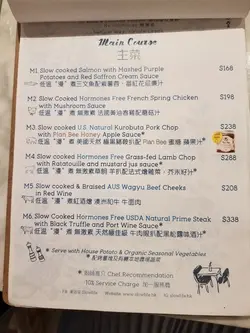 Main Course
主菜
M1 Slow cooked Salmon with Mashed Purple $168
Potatoes and Red Saffron Cream Sauce
低溫“漫”煮三文魚配紫薯蓉，藏紅花忌廉汁
M2 Slow cooked Hormones Free French Spring Chicken $198
with Mushroom Sauce
低溫“漫”煮 無激素 法國黃油春雞配蘑菇汁
M3 Slow cooked U.S Natural Kurobuta Pork Chop $238
with Plan Bee Honey Apple Sauce*
低溫“漫”煮 美國天然 級黑豚豬扒配 Plan Bee 蜜糖 蘋果汁*
M4 Slow cooked Hormones Free Grass-fed Lamb Chop $288
with Ratatouille and mustard jus sauce*
M5 Slow cooked & Braised AUS Wagyu Beef Cheeks $208
in Red Wine
低溫“漫”煮紅酒燴 澳洲和牛 牛面肉
M6 Slow Cooked Hormones Free USDA Natural Prime Steak $338
with Black Truffle and Port Wine Sauce*
低溫“漫”煮 無激素 天然級佳級 牛肉眼扒配黑松露砵酒汁*
* Serve with House Potato & Organic Seasonal Vegetables
* 配時薯
Chef Recommendation
10% Service Charge 加一服務費